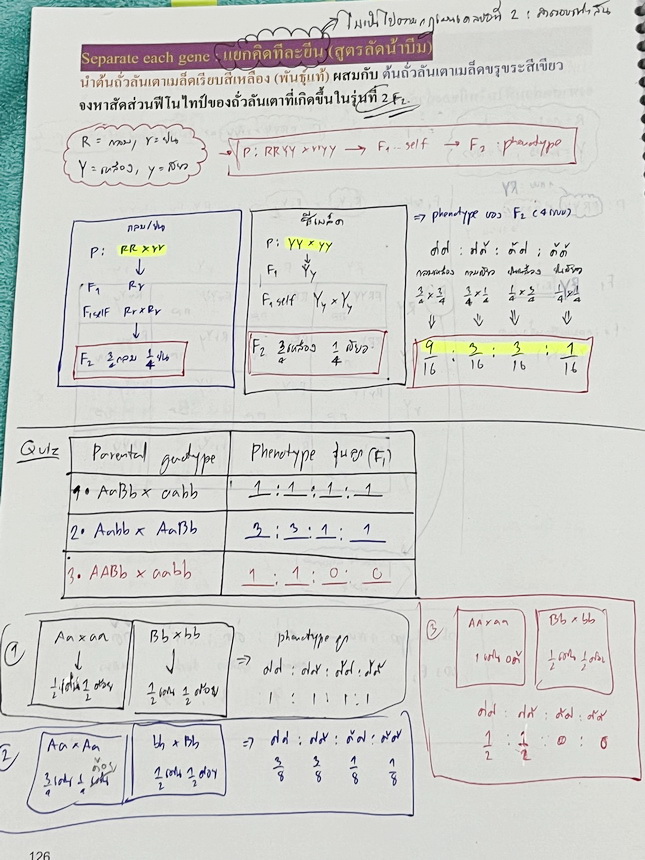 Separate each gene : แยกคิดทีละยีน (สูตรลัดน้าบีม)
นำต้นถั่วลันเตาเมล็ดเรียบสีเหลือง (พันธุ์แท้) ผสมกับ ต้นถั่วลันเตาเมล็ดขรุขระสีเขียว
จงหาสัดส่วนฟีโนไทป์ของถั่วลันเตาที่เกิดขึ้นในรุ่นที่ 2 F2
R = กลม, r = ย่น
Y = เหลือง, y = เขียว
P: RRYY × rryy → F1 self → F2 : phenotype
กลม/ย่น
P: RR × rr
F1 Rr
F1 self Rr × Rr
F2 3/4 กลม 1/4 ย่น
สีเมล็ด
P: YY × yy
F1 Yy
F1 self Yy × Yy
F2 3/4 เหลือง 1/4 เขียว
⇒ phenotype ของ F2 (4 แบบ)
ด่ด่ : ด่ด้ : ด้ด่ : ด้ด้
กลมเหลือง กลมเขียว ย่นเหลือง ย่นเขียว
3/4 × 3/4 3/4 × 1/4 1/4 × 3/4 1/4 × 1/4
9/16 : 3/16 : 3/16 : 1/16
Quiz
Parental genotype Phenotype รุ่นลูก (F1)
1. AaBb × aabb 1 : 1 : 1 : 1
2. Aabb × AaBb 3 : 3 : 1 : 1
3. AABb × aabb 1 : 1 : 0 : 0
1
Aa × aa
1/2 เด่น 1/2 ด้อย
Bb × bb
1/2 เด่น 1/2 ด้อย
⇒ phenotype ลูก
ด่ด่ : ด่ด้ : ด้ด่ : ด้ด้
1 : 1 : 1 : 1
2
Aa × Aa
3/4 เด่น 1/4 ด้อย
bb × Bb
1/2 เด่น 1/2 ด้อย
⇒ ด่ด่ : ด่ด้ : ด้ด่ : ด้ด้
3/8 3/8 1/8 1/8
3
AA × aa
1 เด่น 0 ด้
Bb × bb
1/2 เด่น 1/2 ด้อย
ด่ด่ : ด่ด้ : ด้ด่ : ด้ด้
1/2 : 1/2 : 0 : 0
126